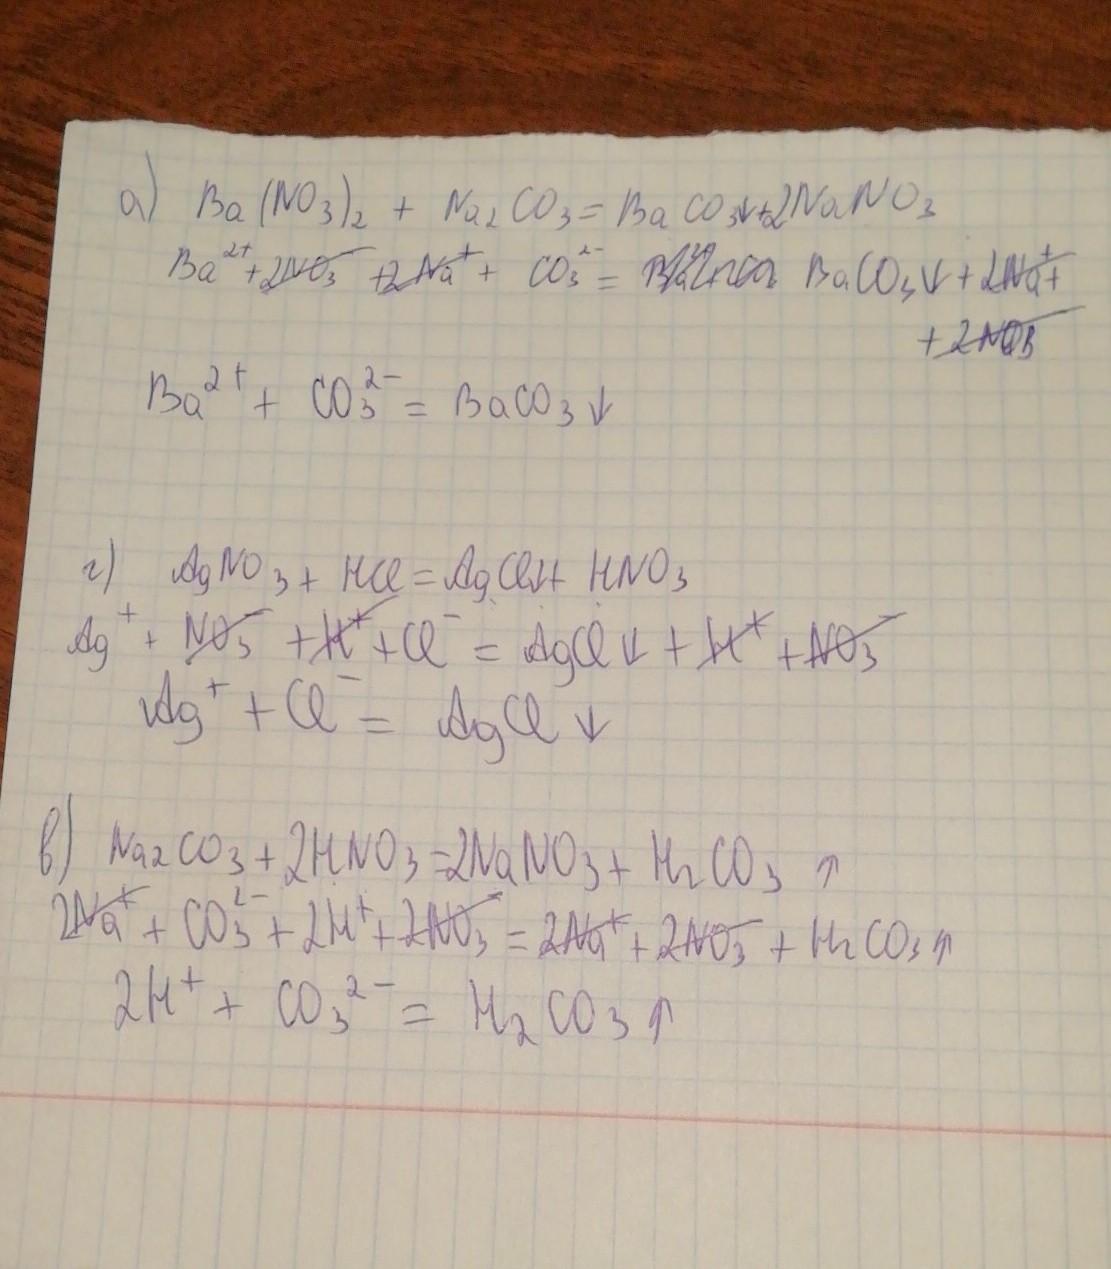 а) Ba(NO₃)₂ + Na₂CO₃ = BaCO₃↓ + 2NaNO₃
Ba²⁺ + 2NO₃⁻ + 2Na⁺ + CO₃²⁻ = BaCO₃↓ + 2Na⁺ +
+ 2NO₃⁻
Ba²⁺ + CO₃²⁻ = BaCO₃↓
г) AgNO₃ + HCl = AgCl↓ + HNO₃
Ag⁺ + NO₃⁻ + H⁺ + Cl⁻ = AgCl↓ + H⁺ + NO₃⁻
Ag⁺ + Cl⁻ = AgCl↓
в) Na₂CO₃ + 2HNO₃ = 2NaNO₃ + H₂CO₃ ↑
2Na⁺ + CO₃²⁻ + 2H⁺ + 2NO₃⁻ = 2Na⁺ + 2NO₃⁻ + H₂CO₃↑
2H⁺ + CO₃²⁻ = H₂CO₃↑